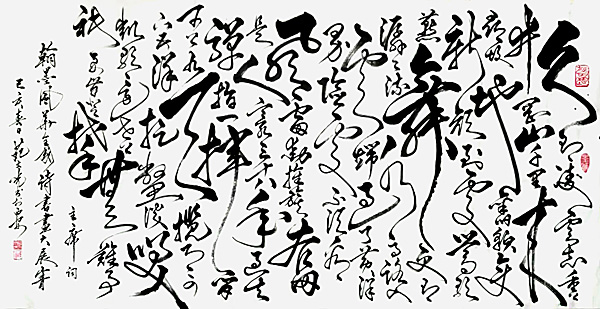 久有凌云志重
上井冈山千里来
寻故地旧貌变
新颜到处莺歌
燕舞更有
潺潺流水高路入
云端过了黄洋
界险处不须看
风雷动旌旗奋
是人寰三十八年过去
弹指一挥间
可上九天揽月可
下五洋捉鳖谈笑
凯歌还世上无难事
只要肯登攀
主席词
翰墨风华全国诗书画大展赛